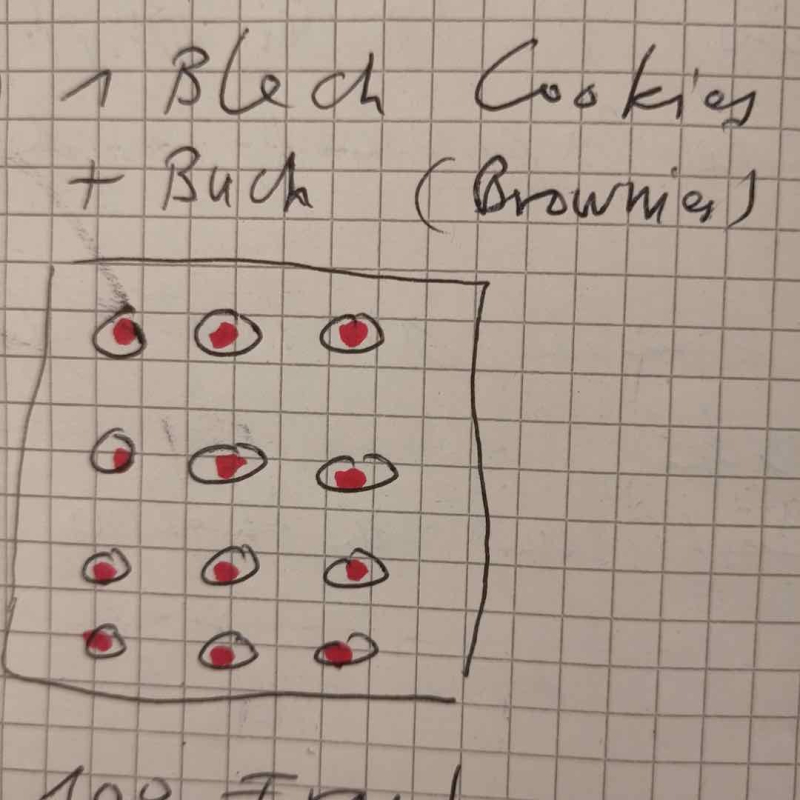 1 Blech Cookies
+ Buch (Brownies)
100